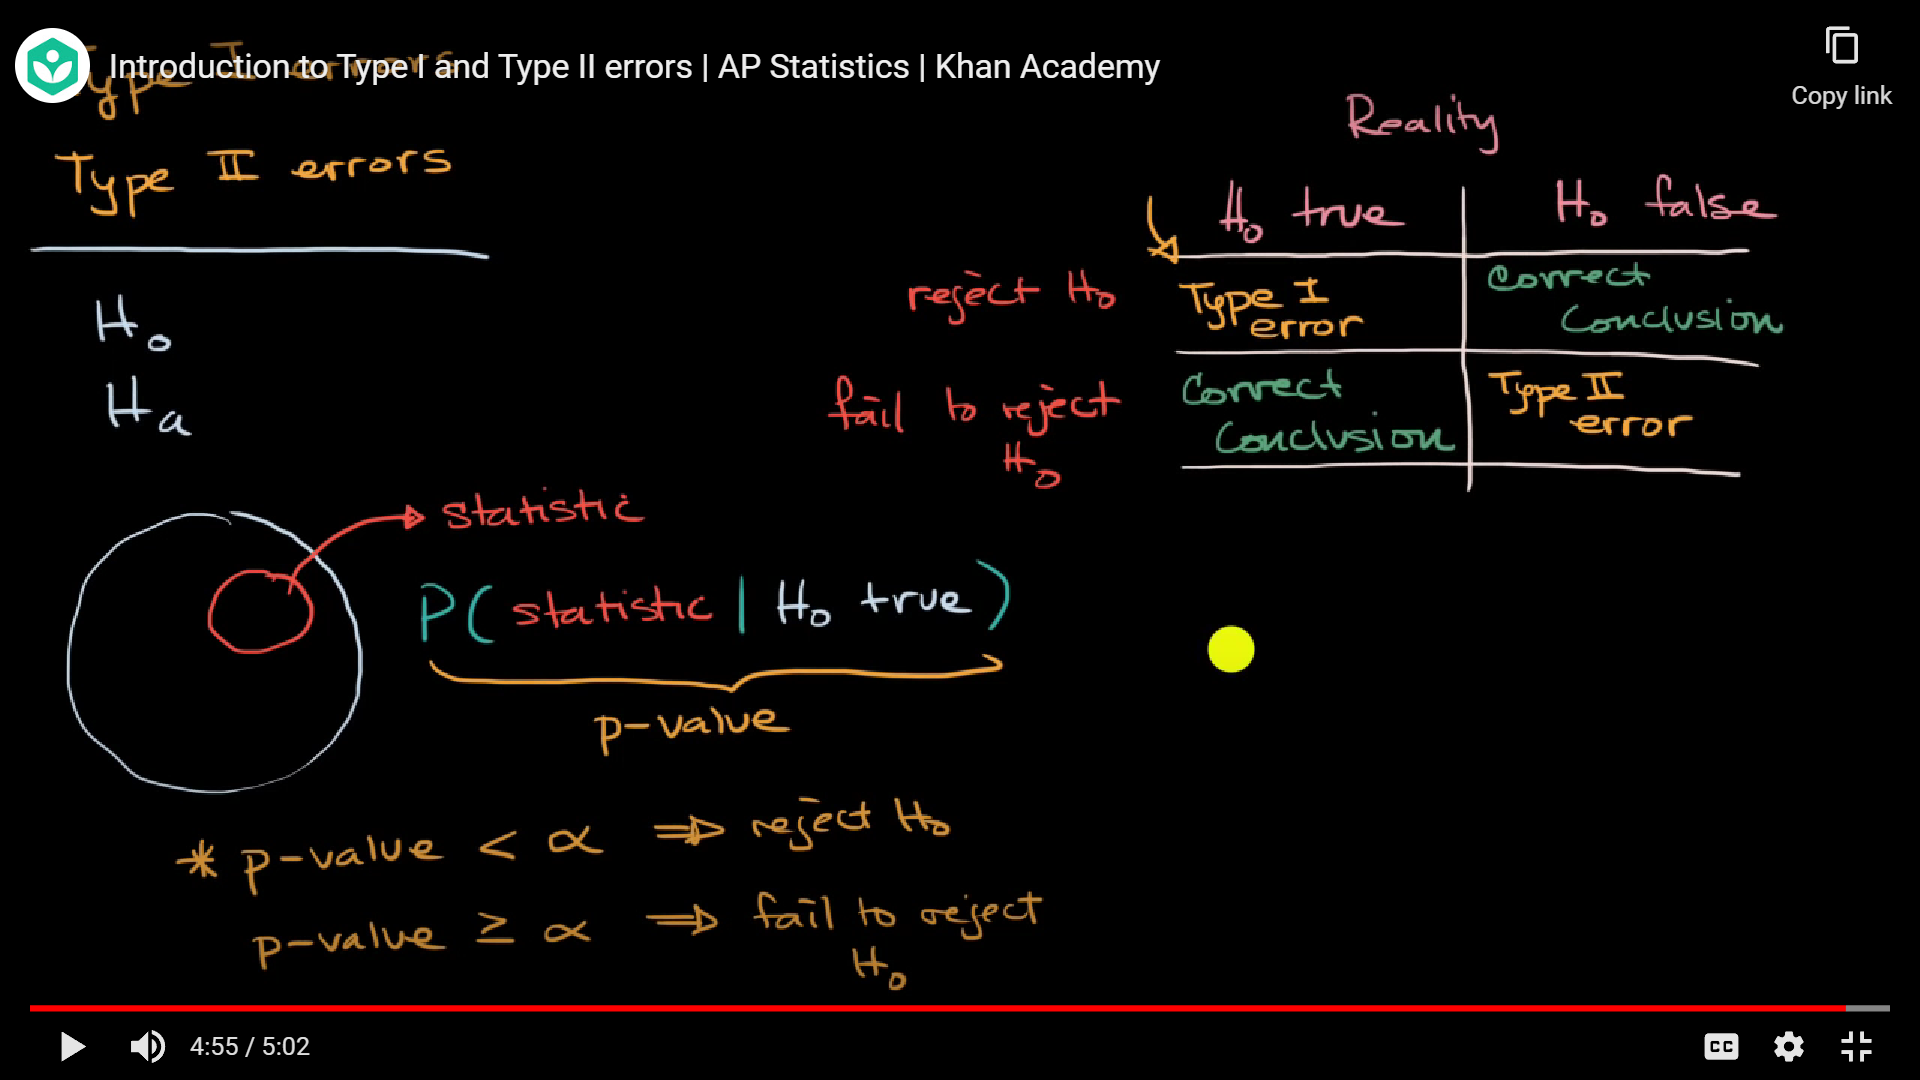 Type I errors
Introduction to Type I and Type II errors | AP Statistics | Khan Academy
Copy link
Type II errors
H₀
Hₐ
Reality
H₀ true
H₀ false
reject H₀
Type I
error
Correct
Conclusion
fail to reject
H₀
Correct
Conclusion
Type II
error
statistic
P( statistic | H₀ true )
p-value
* p-value < α ⇒ reject H₀
p-value ≥ α ⇒ fail to reject
H₀
4:55 / 5:02
CC